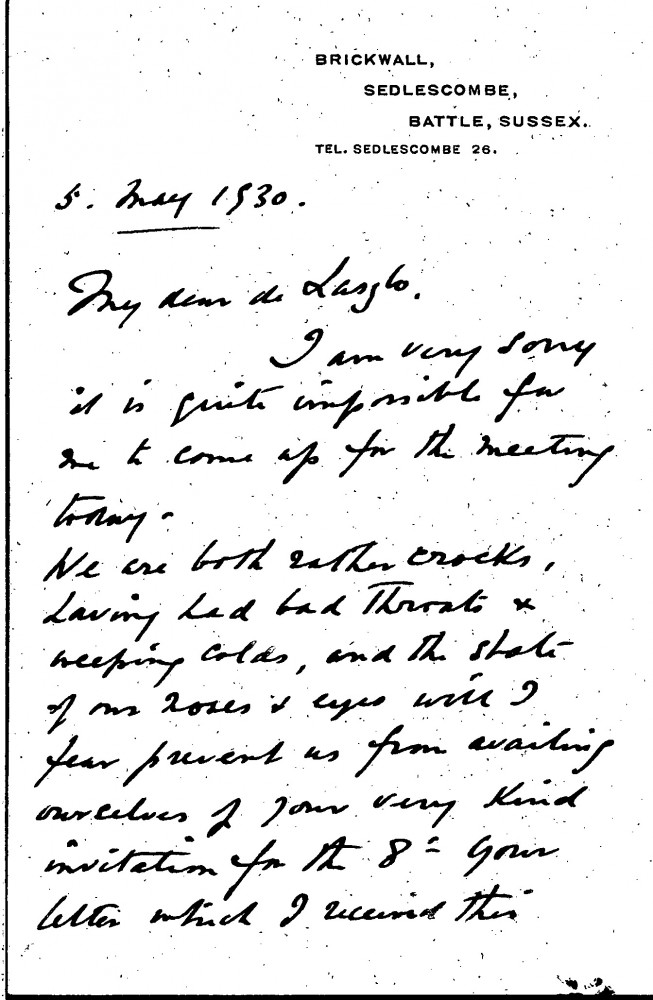 BRICKWALL,
SEDLESCOMBE,
BATTLE, SUSSEX.
TEL. SEDLESCOMBE 26.
5. May 1930.
My dear de Laszlo.
I am very sorry
it is quite impossible for
me to come up for the meeting
today -
We are both rather crocks,
having had bad throats &
weeping colds, and the state
of our noses & eyes will I
fear prevent us from availing
ourselves of your very kind
invitation for the 8th Your
letter which I received this